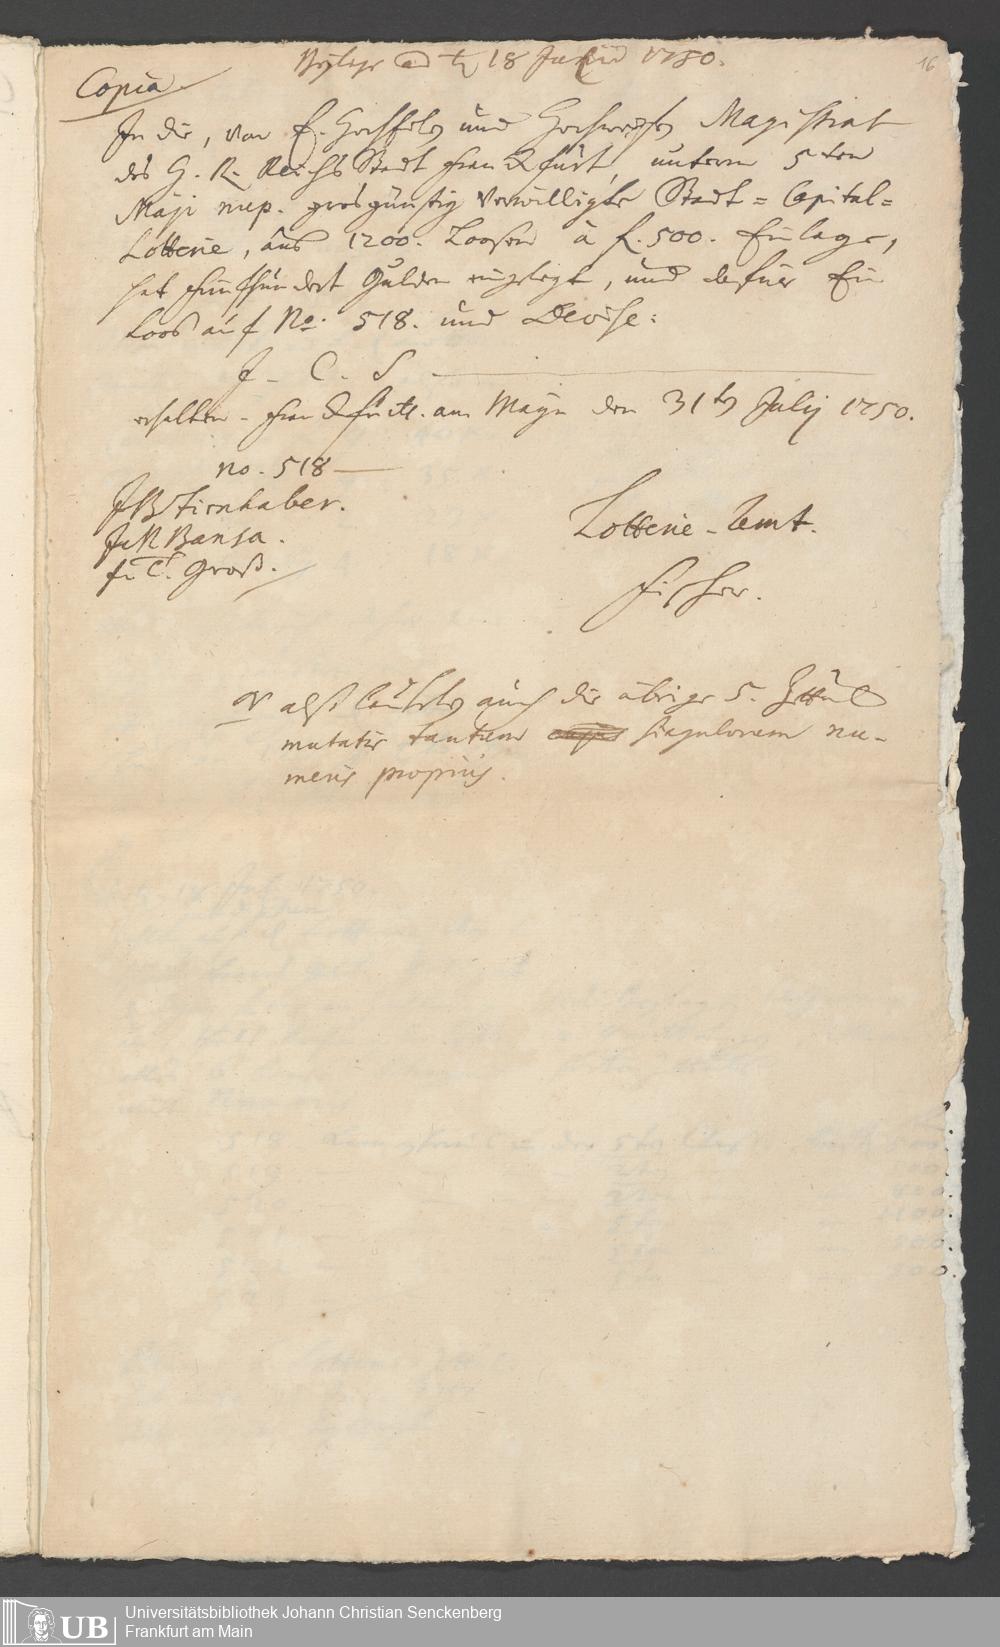 Beylage ad d. 18 Junii 1750.
16
Copia
In die, von E. HochEdlen und Hochweisen Magistrat
des H. R. Reichs Stadt Franckfurt, unterm 5ten
Maji nup. grosgünstig verwilligte Stadt = Capital =
Lotterie, aus 1200. Looßen à f. 500. Einlage,
hat Fünffhundert Gulden eingelegt, und dafür Ein
Loos auf No. 518. und Devise:
J. C. S.
erhalten. Franckfurth. am Mayn den 31ten Julij 1750.
no. 518
JB Firnhaber.
Bansa.
C. Groß.
Lotterie-Amt.
Fischer.
alß lauten auch die übrige 5. Zettul
mutatis tantum singulorum nu-
meris propriis.
Universitätsbibliothek Johann Christian Senckenberg
Frankfurt am Main
UB